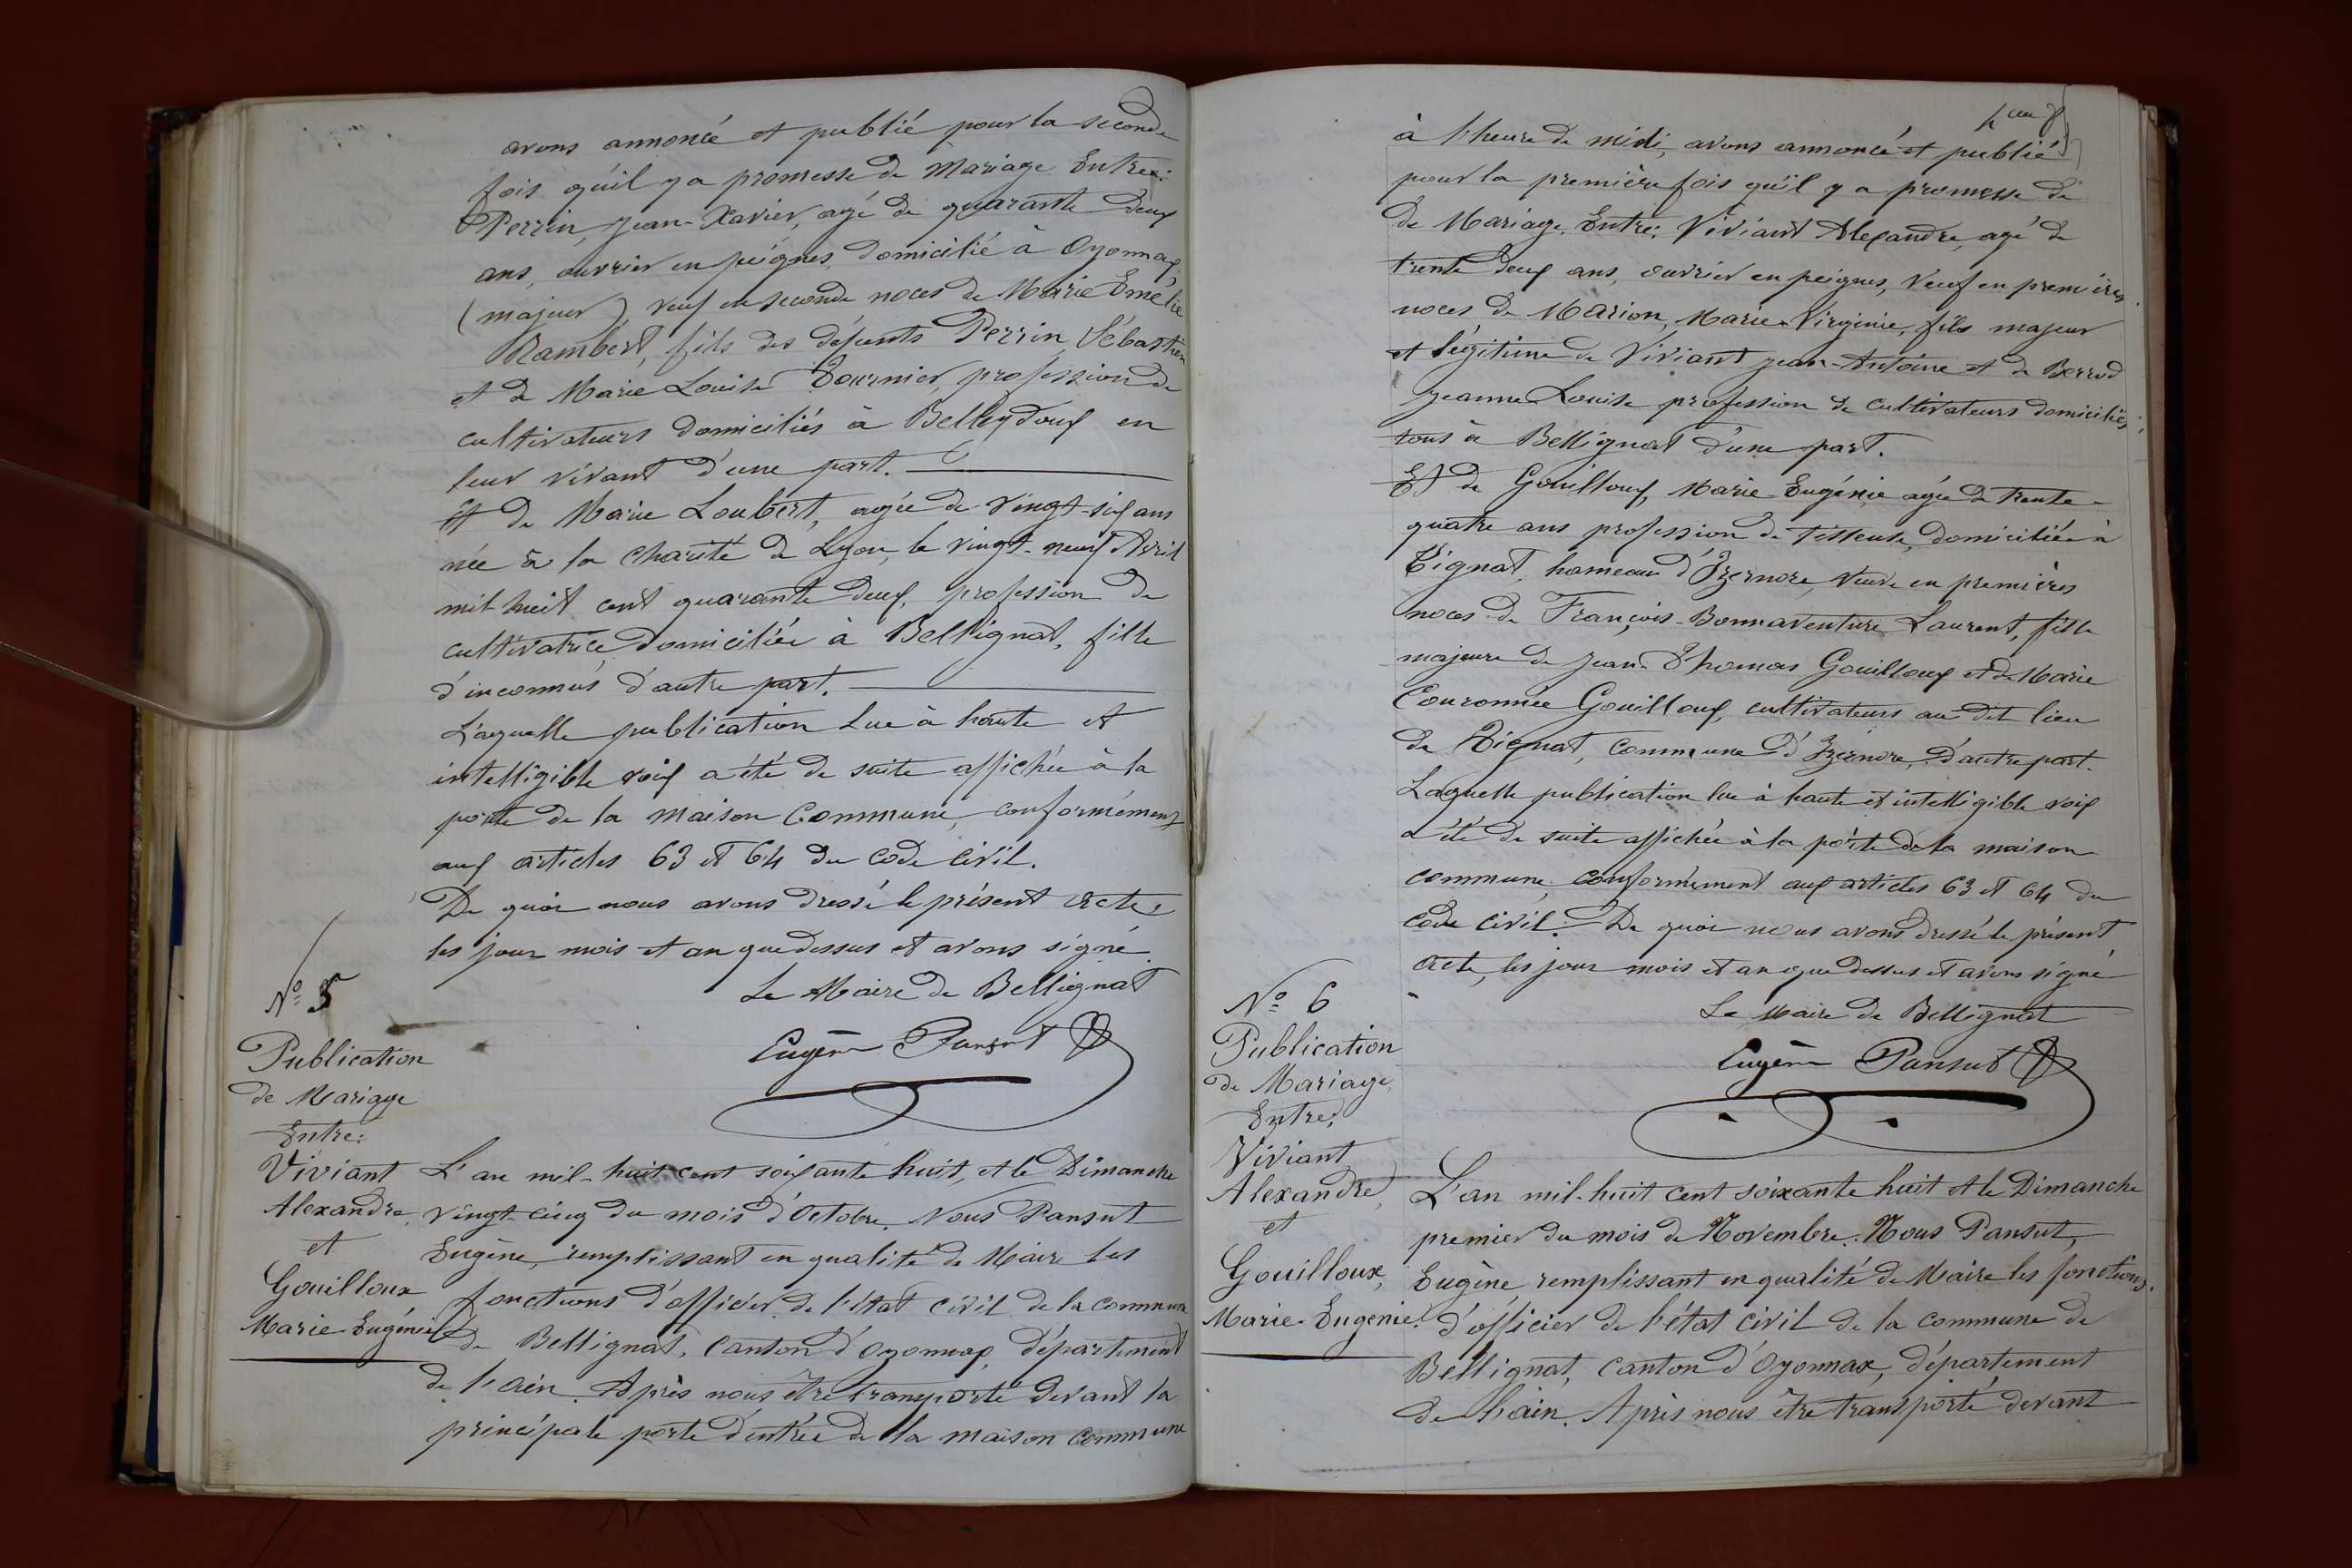 avons annoncé et publié pour la seconde
fois qu'il y a promesse de Mariage Entre:
Perrin, Jean-Xavier, agé de quarante deux
ans, ouvrier en peignes, domicilié à Oyonnax,
(majeur) veuf en seconde noces de Marie Emélie
Rambert, fils des défunts Perrin Sébastien
et de Marie Louise Tournier, profession de
cultivateurs domiciliés à Belleydoux en
leur vivant d'une part.
Et de Marie Loubert, agée de vingt-six ans
née à la Charité de Lyon, le vingt-neuf Avril
mil huit cent quarante deux, profession de
cultivatrice domiciliée à Bellignat, fille
d'inconnus d'autre part.
Laquelle publication lue à haute et
intelligible voix a été de suite affichée à la
porte de la maison Commune, conformément
aux articles 63 et 64 du Code Civil.
De quoi nous avons dressé le présent acte,
les jour mois et an que dessus et avons signé.
Le Maire de Bellignat
Eugène Pansut
N° 5
Publication
de Mariage
Entre:
Viviant
Alexandre,
et
Gouilloux
Marie-Eugénie
L'an mil-huit cent soixante huit, et le Dimanche
vingt-cinq du mois d'Octobre. Nous Pansut
Eugène, remplissant en qualité de Maire les
fonctions d'officier de l'état civil de la commune
de Bellignat, Canton d'Oyonnax, département
de l'ain. Après nous être transporté devant la
principale porte d'entrée de la maison commune
à l'heure de midi, avons annoncé et publié
pour la première fois qu'il y a promesse de
de Mariage, Entre: Viviant Alexandre, agé de
trente deux ans, ouvrier en peignes, veuf en premières
noces de Marion, Marie-Virginie, fils majeur
et légitime de Viviant Jean-Antoine et de Berrod
Jeanne Louise profession de cultivateurs domiciliés
tous à Bellignat d'une part.
Et de Gouilloux, Marie-Eugénie agée de trente-
quatre ans profession de tilleuse, domiciliée à
Tignat, hameau d'Izernore, veuve en premières
noces de François-Bonnaventure Laurent, fille
majeure de Jean-Thomas Gouilloux et de Marie
Couronnée Gouilloux, cultivateurs au dit lieu
de Tignat, Commune d'Izernore, d'autre part.
Laquelle publication lue à haute et intelligible voix
a été de suite affichée à la porte de la maison
commune, conformément aux articles 63 et 64 du
code civil. De quoi nous avons dressé le présent
acte, les jour mois et an que dessus et avons signé
Le Maire de Bellignat
Eugène Pansut
N° 6
Publication
de Mariage,
Entre:
Viviant
Alexandre,
et
Gouilloux,
Marie-Eugénie
L'an mil-huit cent soixante huit et le Dimanche
premier du mois de Novembre. Nous Pansut,
Eugène, remplissant en qualité de Maire les fonctions
d'officier de l'état civil de la commune de
Bellignat, canton d'Oyonnax, département
de l'ain. Après nous être transporté devant